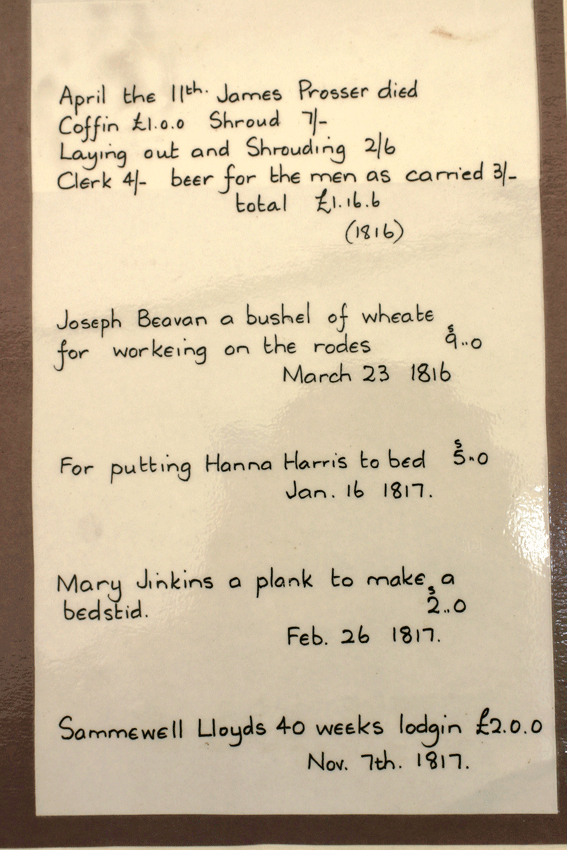 April the 11th. James Prosser died
Coffin £1.0.0 Shroud 7/-
Laying out and Shrouding 2/6
Clerk 4/- beer for the men as carried 3/-
total £1.16.6
(1816)
Joseph Beavan a bushel of wheate
for workeing on the rodes 9s..0
March 23 1816
For putting Hanna Harris to bed 5s..0
Jan. 16 1817.
Mary Jinkins a plank to make a
bedstid. 2s..0
Feb. 26 1817.
Sammewell Lloyds 40 weeks lodgin £2.0.0
Nov. 7th. 1817.